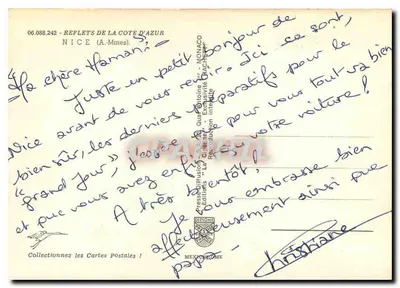 06.088.242 - REFLETS DE LA COTE D'AZUR
NICE (A.-Mmes).
Ma chère Maman,
Juste un petit bonjour de
Nice avant de vous revoir. Ici ce sont,
bien sûr, les derniers préparatifs pour le
"grand jour", j'espère que pour vous tout va bien
et que vous avez enfin eu votre voiture !
A très bientôt,
Je vous embrasse bien
affectueusement ainsi que
papa.
Christiane
Collectionnez les Cartes Postales !